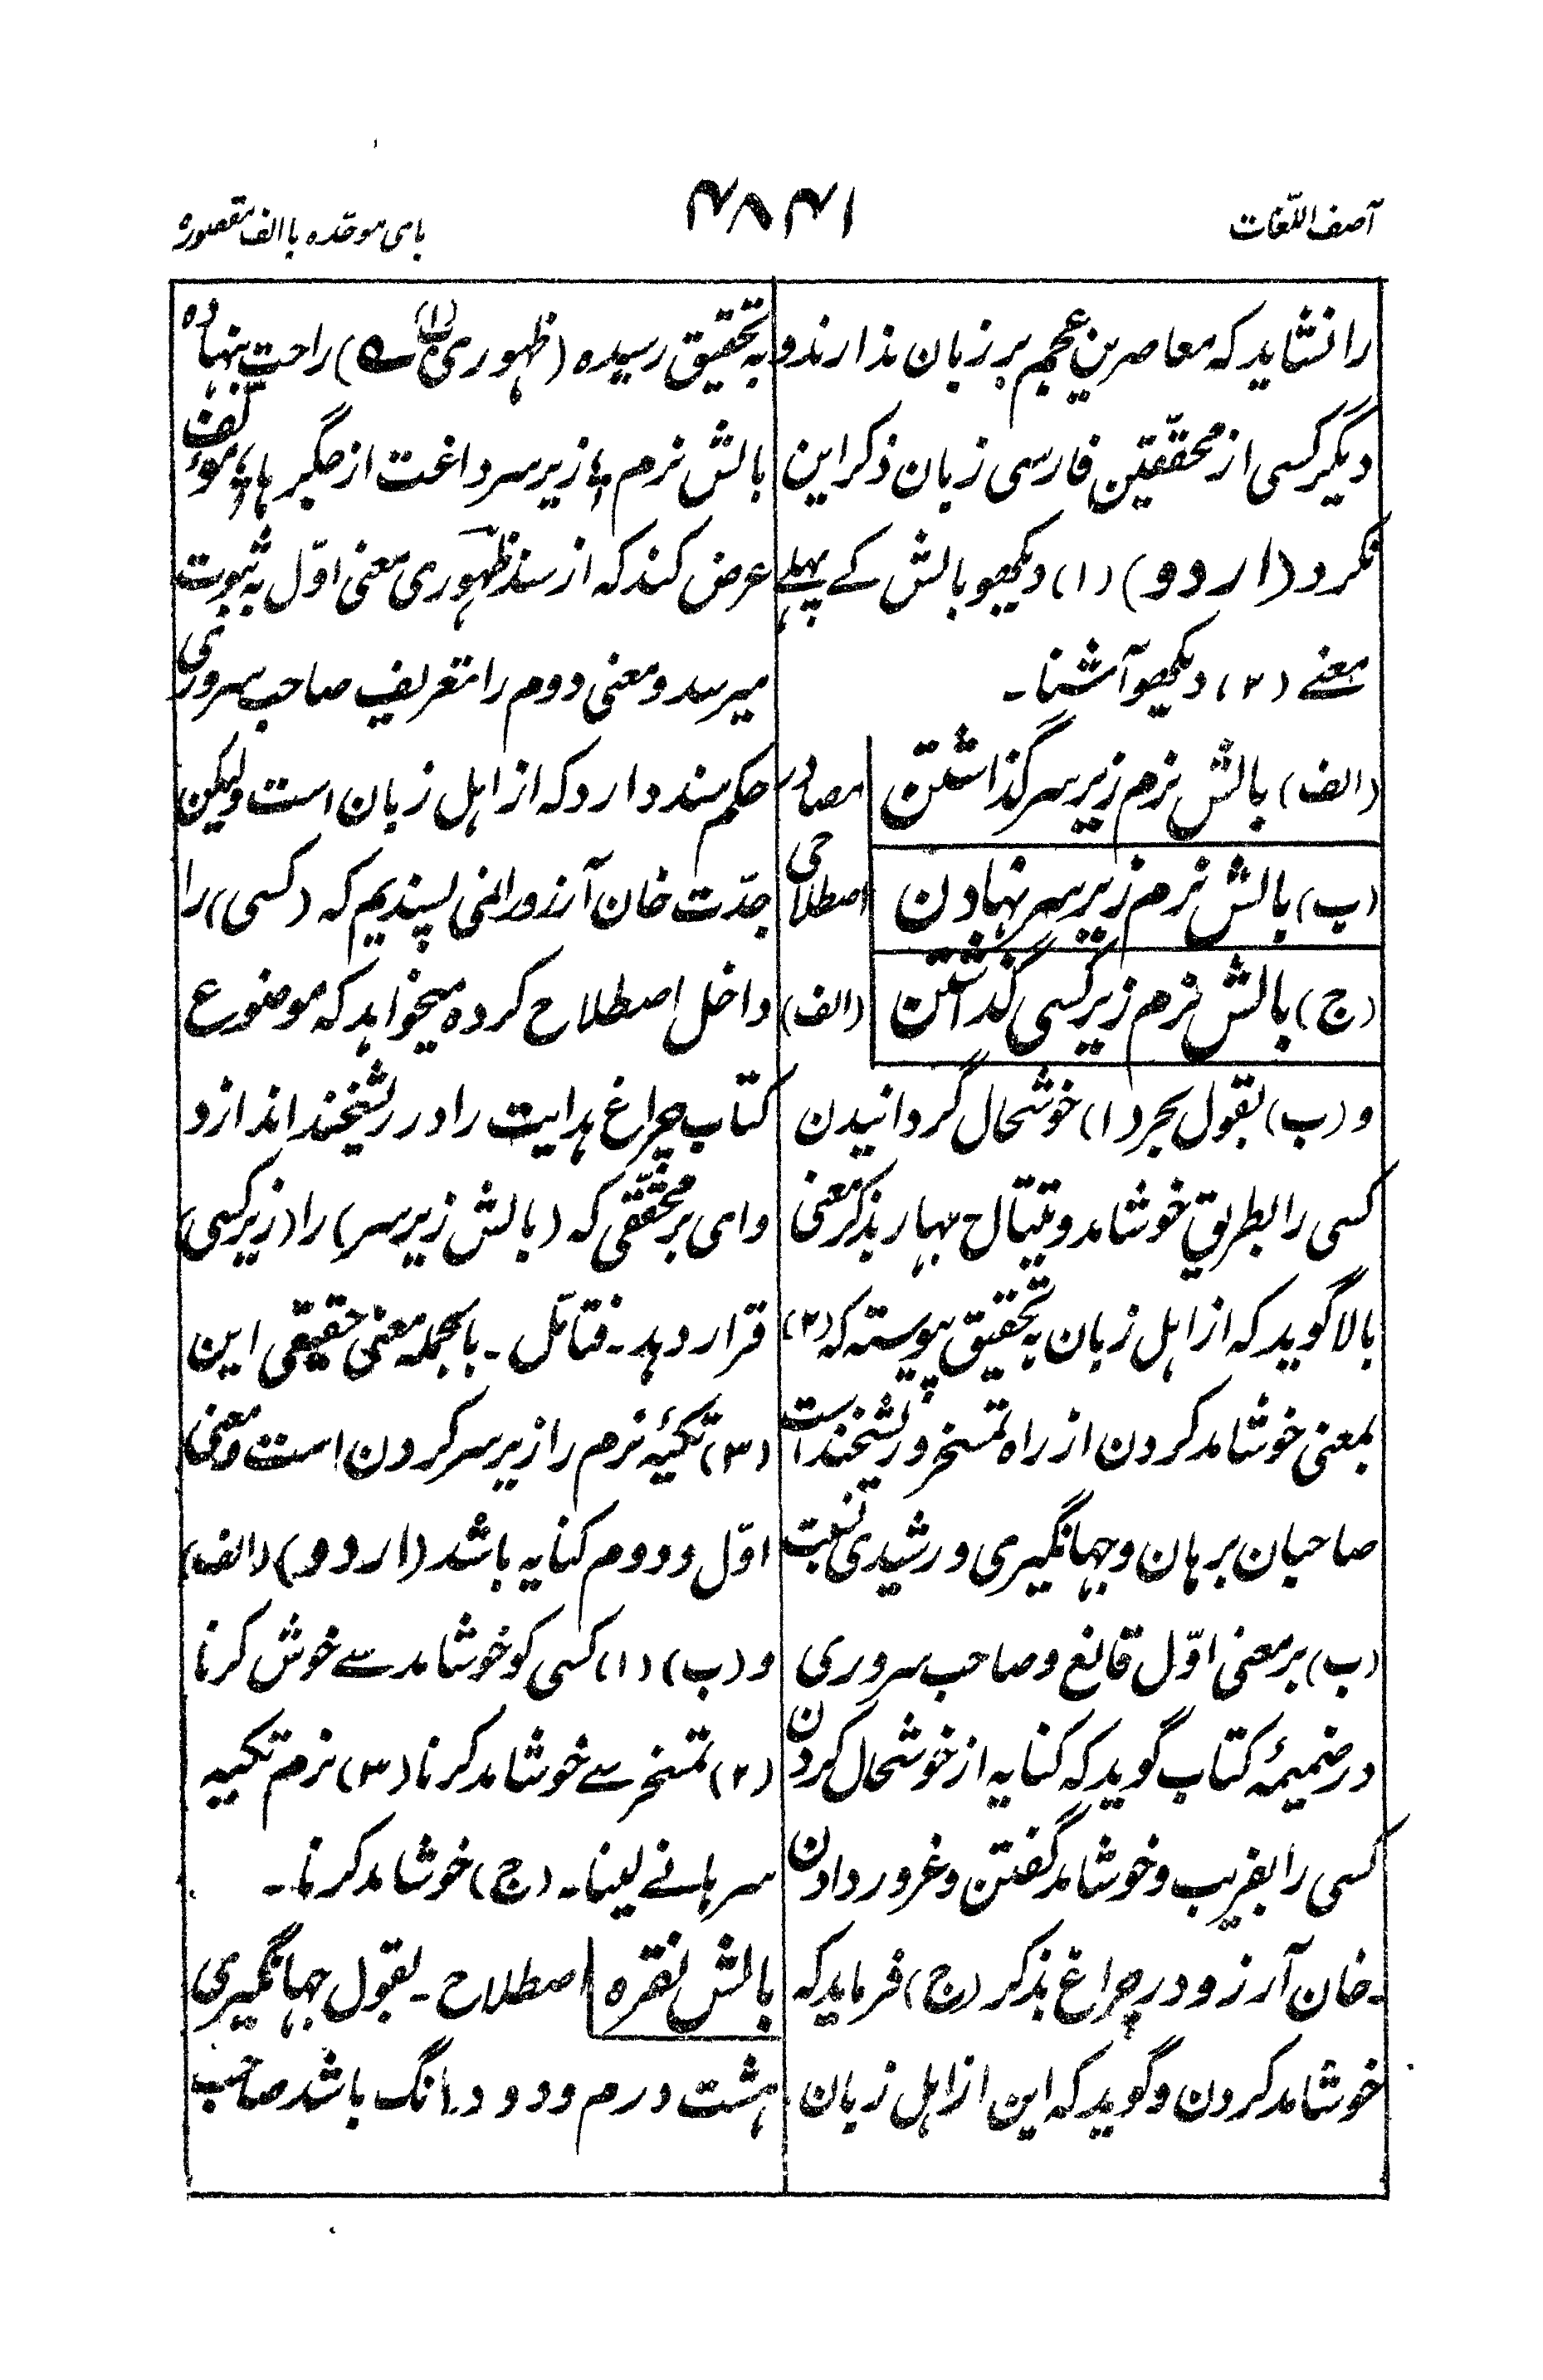 آصف اللّغات
۴۸۴۱
بای موحّده باالف مقصوره
را نشاید که معاصرین عجم بر زبان ندارند و
دیگر کسی از محقّقین فارسی زبان ذکر این
نکرد (اردو) (۱) دیکھو بالش کے پہلے
معنے (۲) دیکھو آشنا۔
(الف) بالش نرم زیر سر گذاشتن
مصادر
(ب) بالش نرم زیر سر نہادن
اصطلاحی
(ج) بالش نرم زیر کسی گذاشتن
(الف)
و (ب) بقول بحر (۱) خوشحال گردانیدن
کسی را بطریق خوشامد و تیتال۔ بہار بذکر معنی
بالا گوید کہ از اہل زبان بہ تحقیق پیوستہ کہ (۲)
بمعنی خوشامد کردن از راہ تمسخر و ریشخند است
صاحبان برہان و جہانگیری و رشیدی نسبت
(ب) بر معنی اوّل قانع و صاحب سروری
در ضمیمۂ کتاب گوید کہ کنایہ از خوشحال کردن
کسی را بفریب و خوشامد گفتن و غرور دادن
۔خان آرزو در چراغ بذکر (ج) فرماید کہ
خوشامد کردن و گوید کہ این از اہل زبان
بہ تحقیق رسیدہ (ظہوری ؎) راحت بنہادہ
بالش نرم ؛ زیر سر داغت از جگرہا ؛ مؤلّف
عرض کند کہ از سند ظہوری معنی اوّل بہ ثبوت
میرسد و معنی دوم را تعریف صاحب سروری
حکم سند دارد کہ از اہل زبان است ولیکن
جدّت خان آرزو را نمی پسندیم کہ (کسی) را
داخل اصطلاح کردہ میخواہد کہ موضوع
کتاب چراغ ہدایت را در ریشخند اندازد
وای بر محقّقی کہ (بالش زیر سر) را (زیر کسی)
قرار دہد۔ فتامّل۔ بالجملہ معنی حقیقی این
(۳) تکیۂ نرم را زیر سر کردن است و معنی
اوّل و دوم کنایہ باشد (اردو) (الف)
و (ب) (۱) کسی کو خوشامد سے خوش کرنا
(۲) تمسخر سے خوشامد کرنا (۳) نرم تکیہ
سرہانے لینا۔ (ج) خوشامد کرنا۔
بالش نقرہ
اصطلاح۔ بقول جہانگیری
ہشت درم و دو دانگ باشد صاحب